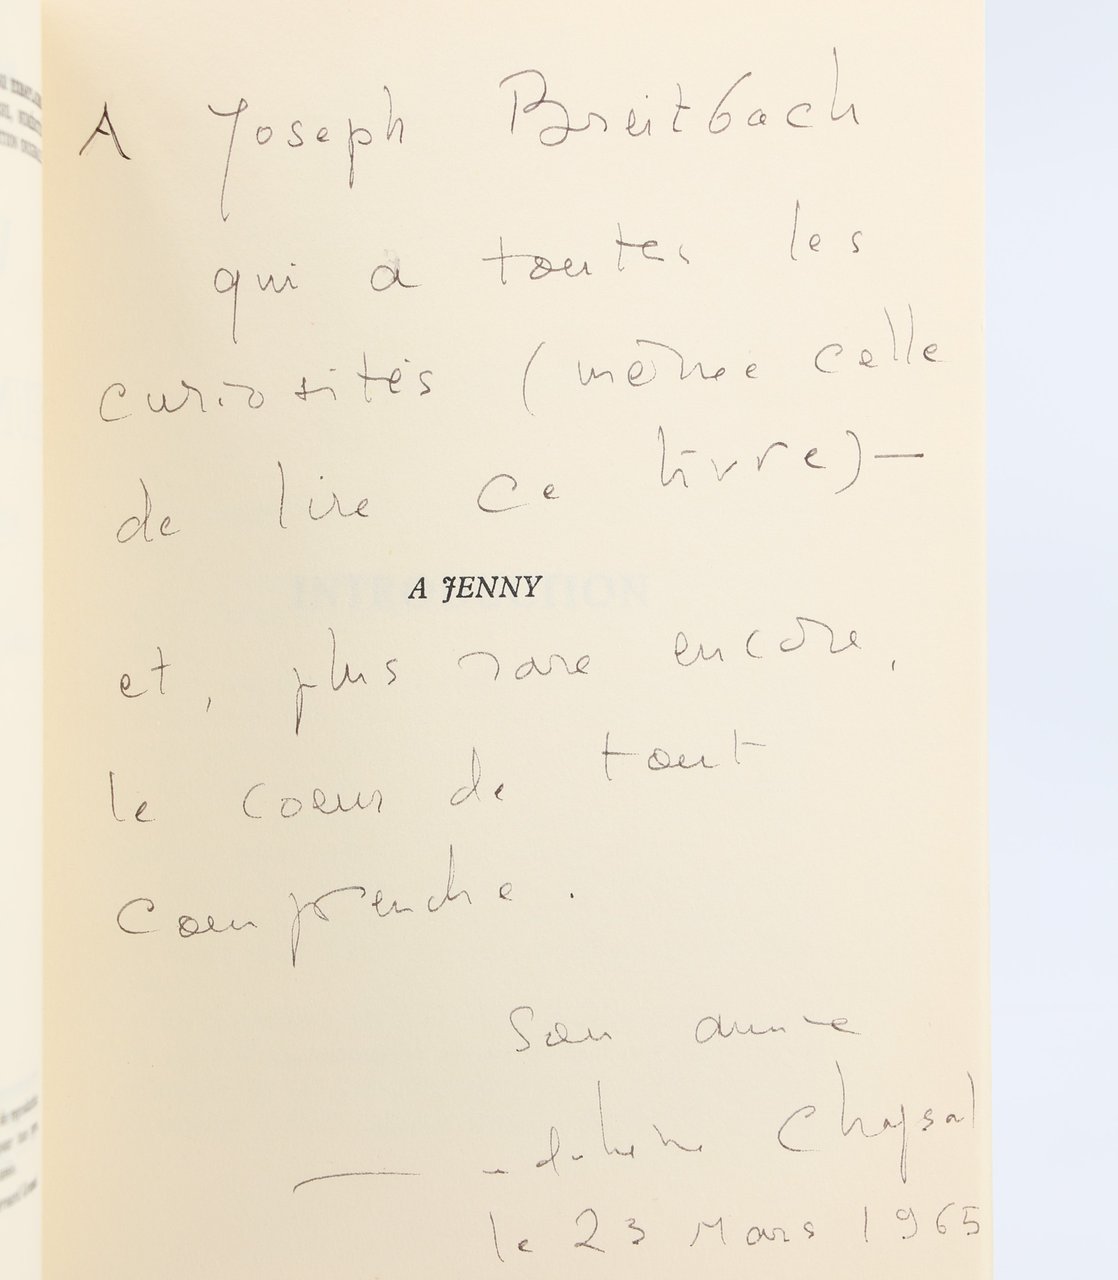 A Joseph Breitbach
qui a toutes les
curiosités (même celle
de lire ce livre) —
A JENNY
et, plus rare encore,
le coeur de tout
comprendre.
Son amie
Chapsal
le 23 Mars 1965